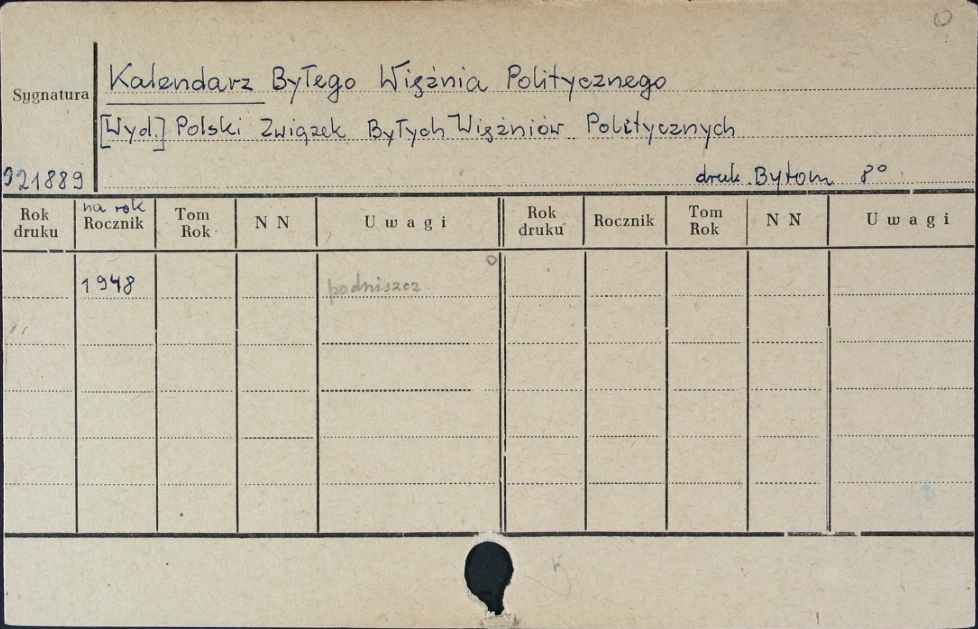 Kalendarz Byłego Więźnia Politycznego
Sygnatura
[Wyd.] Polski Związek Byłych Więźniów Politycznych
921889
druk. Bytom 8°
Rok druku
na rok Rocznik
Tom Rok
N N
Uwagi
Rok druku
Rocznik
Tom Rok
N N
Uwagi
1948
podniszcz